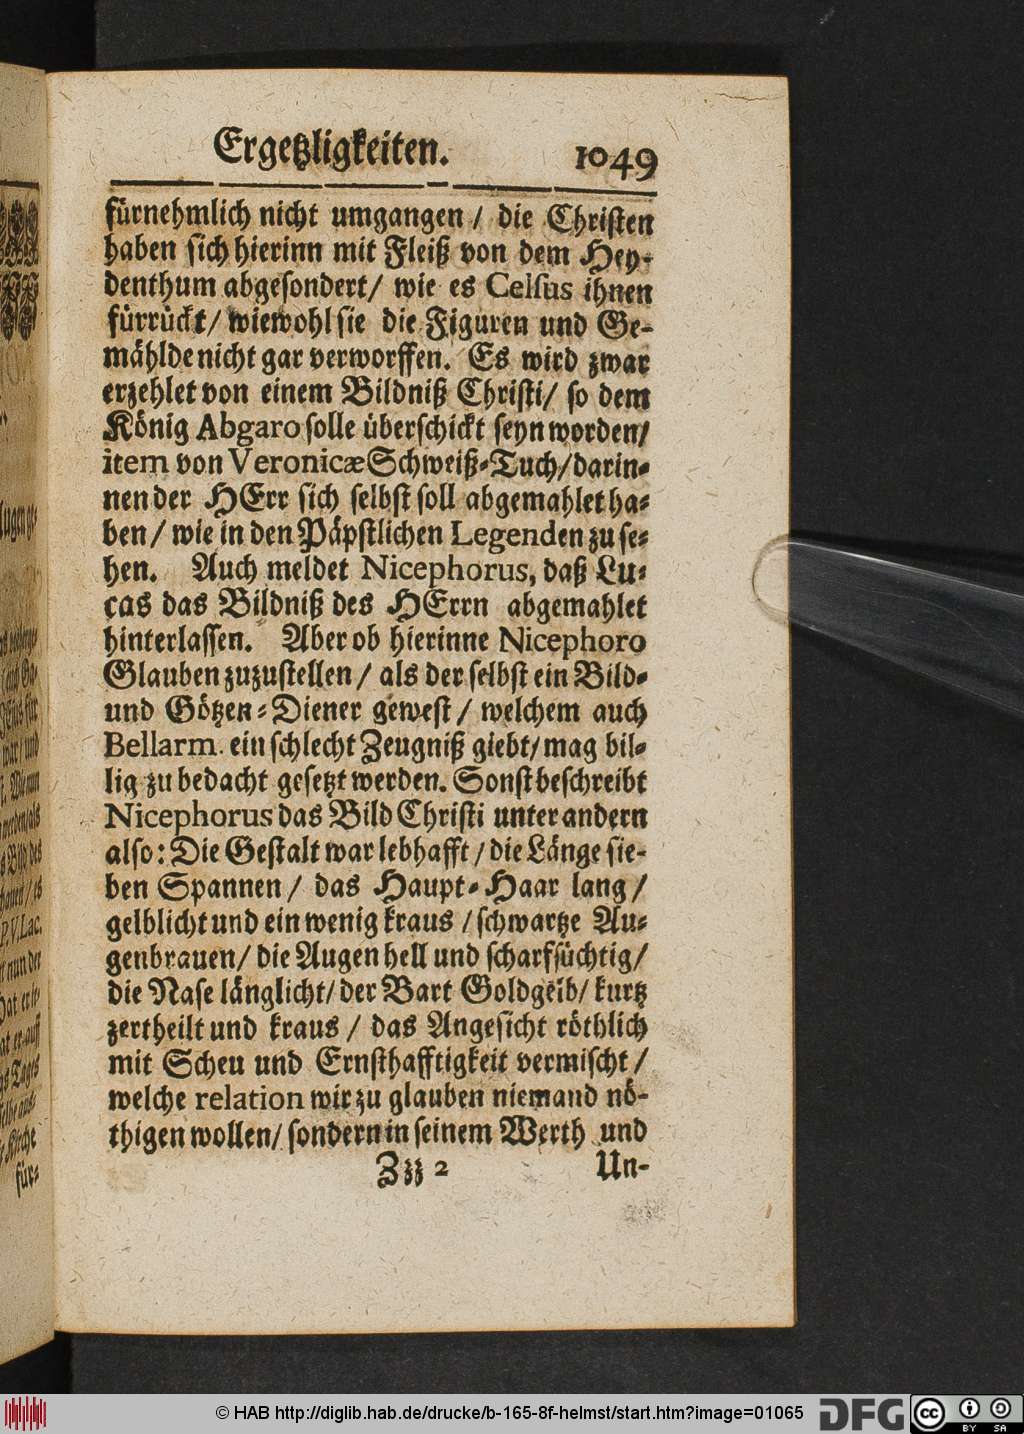 Ergetzligkeiten. 1049
fürnehmlich nicht umgangen / die Christen
haben sich hierinn mit Fleiß von dem Hey-
denthum abgesondert/ wie es Celsus ihnen
fürrückt/ wiewohl sie die Figuren und Ge-
mählde nicht gar verworffen. Es wird zwar
erzehlet von einem Bildniß Christi/ so dem
König Abgaro solle überschickt seyn worden/
item von Veronicæ Schweiß-Tuch/ darin-
nen der HErr sich selbst soll abgemahlet ha-
ben / wie in den Päpstlichen Legenden zu se-
hen. Auch meldet Nicephorus, daß Lu-
cas das Bildniß des HErrn abgemahlet
hinterlassen. Aber ob hierinne Nicephoro
Glauben zuzustellen / als der selbst ein Bild-
und Götzen-Diener gewest / welchem auch
Bellarm. ein schlecht Zeugniß giebt/ mag bil-
lig zu bedacht gesetzt werden. Sonst beschreibt
Nicephorus das Bild Christi unter andern
also: Die Gestalt war lebhafft / die Länge sie-
ben Spannen / das Haupt-Haar lang /
gelblicht und ein wenig kraus / schwartze Au-
genbrauen/ die Augen hell und scharfsüchtig/
die Nase länglicht/ der Bart Goldgelb/ kurtz
zertheilt und kraus / das Angesicht röthlich
mit Scheu und Ernsthafftigkeit vermischt /
welche relation wir zu glauben niemand nö-
thigen wollen/ sondern in seinem Werth und
Zzz 2 Un-
© HAB http://diglib.hab.de/drucke/b-165-8f-helmst/start.htm?image=01065 DFG cc BY SA